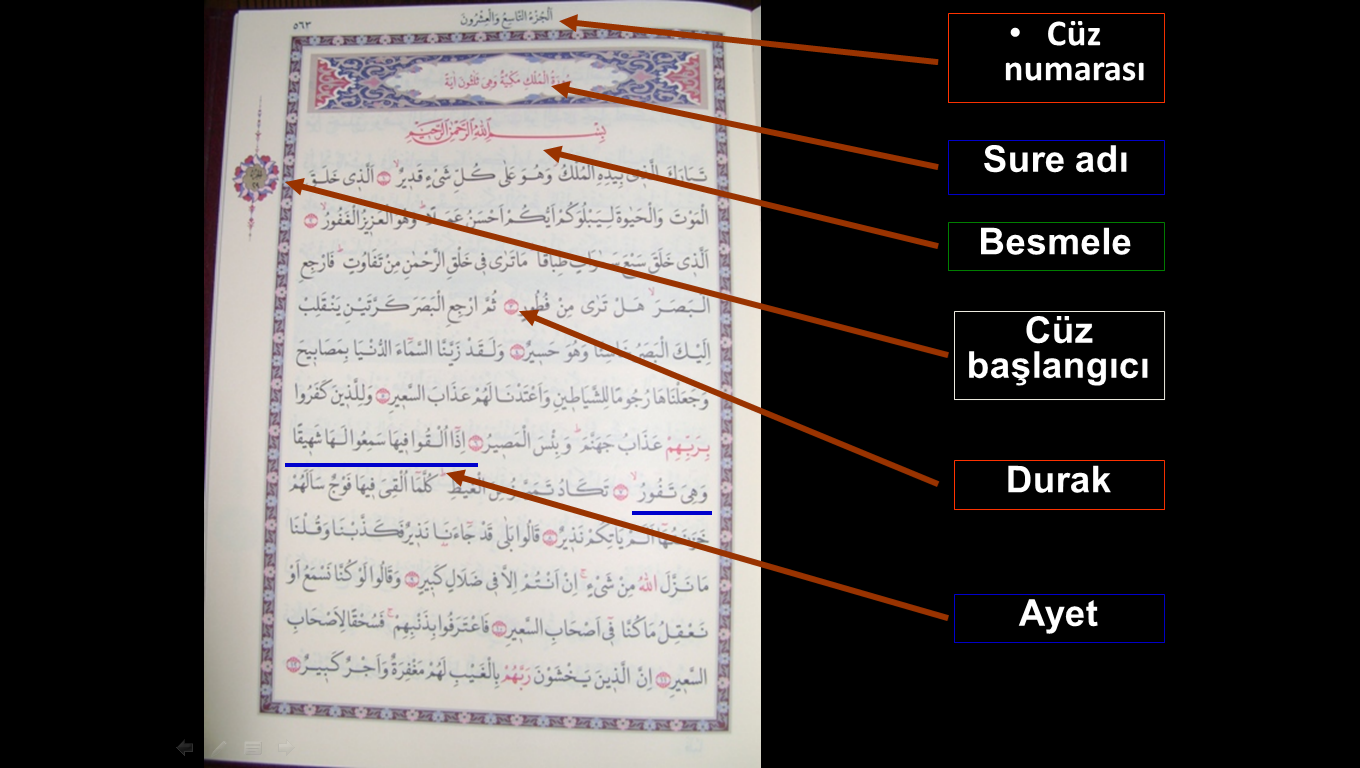 اَلْجُزْءُ التَّاسِعُ وَالْعِشْرُونَ
٥٦٣
سُورَةُ الْمُلْكِ مَكِّيَّةٌ وَهِيَ ثَلٰثُونَ اٰيَةً
بِسْمِ اللّٰهِ الرَّحْمٰنِ الرَّحِيمِ
تَبَارَكَ الَّذِي بِيَدِهِ الْمُلْكُ وَهُوَ عَلٰى كُلِّ شَيْءٍ قَدِيرٌ ١ اَلَّذِي خَلَقَ
الْمَوْتَ وَالْحَيٰوةَ لِيَبْلُوَكُمْ اَيُّكُمْ اَحْسَنُ عَمَلًا وَهُوَ الْعَزِيزُ الْغَفُورُ ٢
اَلَّذِي خَلَقَ سَبْعَ سَمٰوَاتٍ طِبَاقًا مَا تَرٰى فِي خَلْقِ الرَّحْمٰنِ مِنْ تَفَاوُتٍ فَارْجِعِ
الْبَصَرَ هَلْ تَرٰى مِنْ فُطُورٍ ٣ ثُمَّ ارْجِعِ الْبَصَرَ كَرَّتَيْنِ يَنْقَلِبْ
اِلَيْكَ الْبَصَرُ خَاسِئًا وَهُوَ حَسِيرٌ ٤ وَلَقَدْ زَيَّنَّا السَّمَاءَ الدُّنْيَا بِمَصَابِيحَ
وَجَعَلْنَاهَا رُجُومًا لِلشَّيَاطِينِ وَاَعْتَدْنَا لَهُمْ عَذَابَ السَّعِيرِ ٥ وَلِلَّذِينَ كَفَرُوا
بِرَبِّهِمْ عَذَابُ جَهَنَّمَ وَبِئْسَ الْمَصِيرُ ٦ اِذَا اُلْقُوا فِيهَا سَمِعُوا لَهَا شَهِيقًا
وَهِيَ تَفُورُ ٧ تَكَادُ تَمَيَّزُ مِنَ الْغَيْظِ كُلَّمَا اُلْقِيَ فِيهَا فَوْجٌ سَاَلَهُمْ
خَزَنَتُهَا اَلَمْ يَأْتِكُمْ نَذِيرٌ ٨ قَالُوا بَلٰى قَدْ جَاءَنَا نَذِيرٌ فَكَذَّبْنَا وَقُلْنَا
مَا نَزَّلَ اللّٰهُ مِنْ شَيْءٍ اِنْ اَنْتُمْ اِلَّا فِي ضَلَالٍ كَبِيرٍ ٩ وَقَالُوا لَوْ كُنَّا نَسْمَعُ اَوْ
نَعْقِلُ مَا كُنَّا فِي اَصْحَابِ السَّعِيرِ ١٠ فَاعْتَرَفُوا بِذَنْبِهِمْ فَسُحْقًا لِاَصْحَابِ
السَّعِيرِ ١١ اِنَّ الَّذِينَ يَخْشَوْنَ رَبَّهُمْ بِالْغَيْبِ لَهُمْ مَغْفِرَةٌ وَاَجْرٌ كَبِيرٌ ١٢
• Cüz
numarası
Sure adı
Besmele
Cüz
başlangıcı
Durak
Ayet